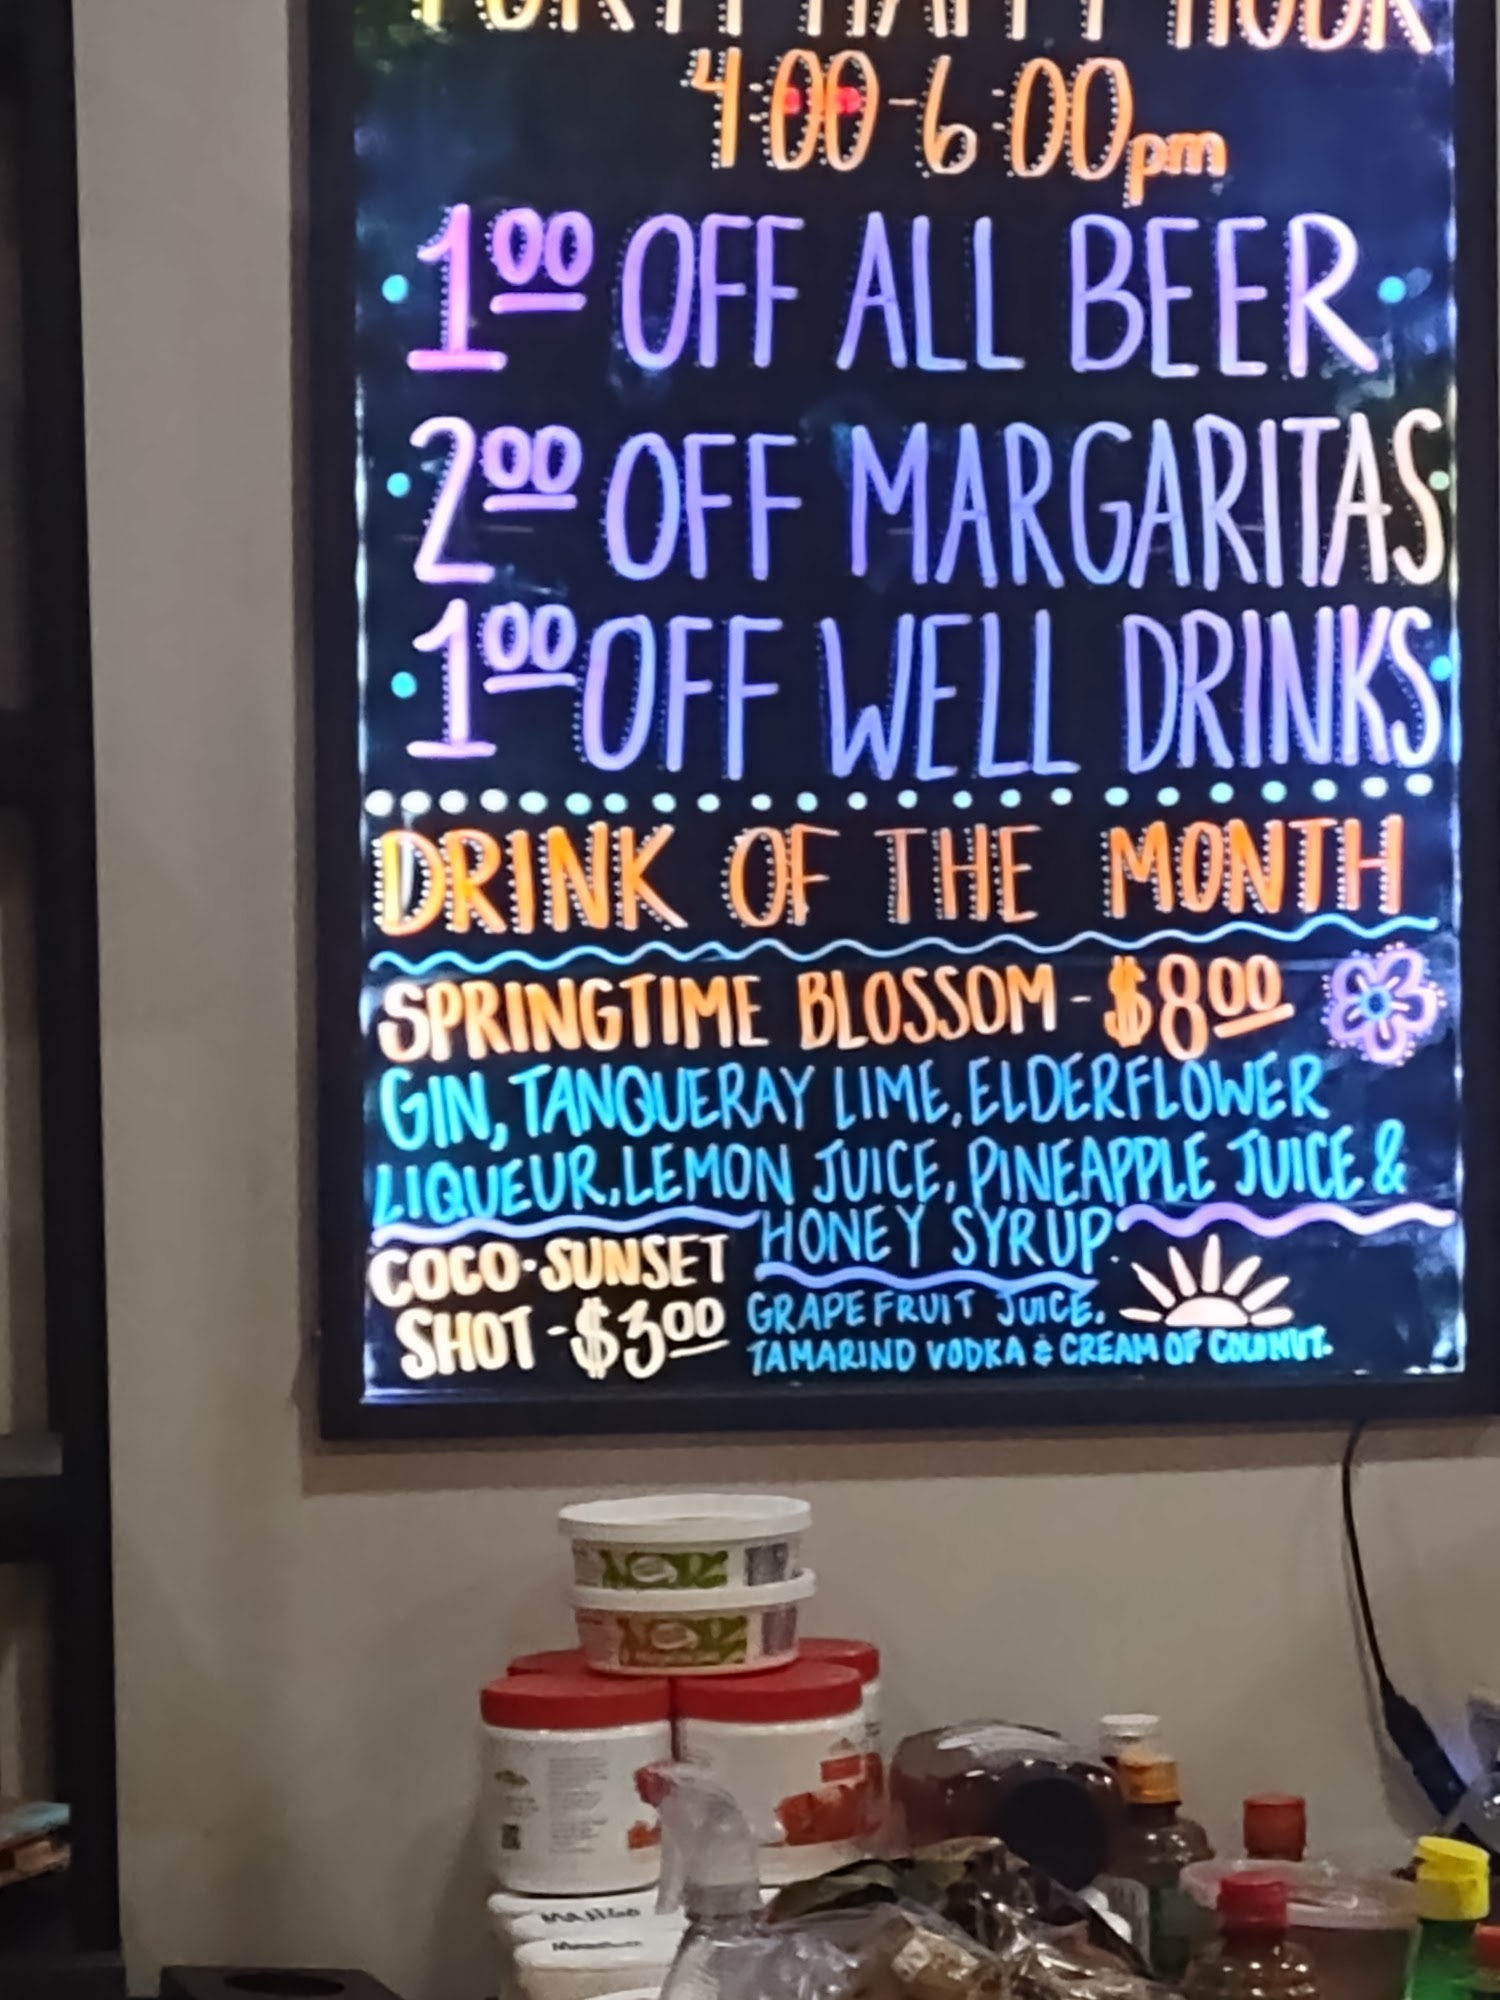 HAPPY HOUR
4:00-6:00pm
1.00 OFF ALL BEER
2.00 OFF MARGARITAS
1.00 OFF WELL DRINKS
DRINK OF THE MONTH
SPRINGTIME BLOSSOM - $8.00
GIN, TANQUERAY LIME, ELDERFLOWER
LIQUEUR, LEMON JUICE, PINEAPPLE JUICE &
HONEY SYRUP
COCO-SUNSET
SHOT - $3.00
GRAPEFRUIT JUICE,
TAMARIND VODKA & CREAM OF COCONUT.
MANGO